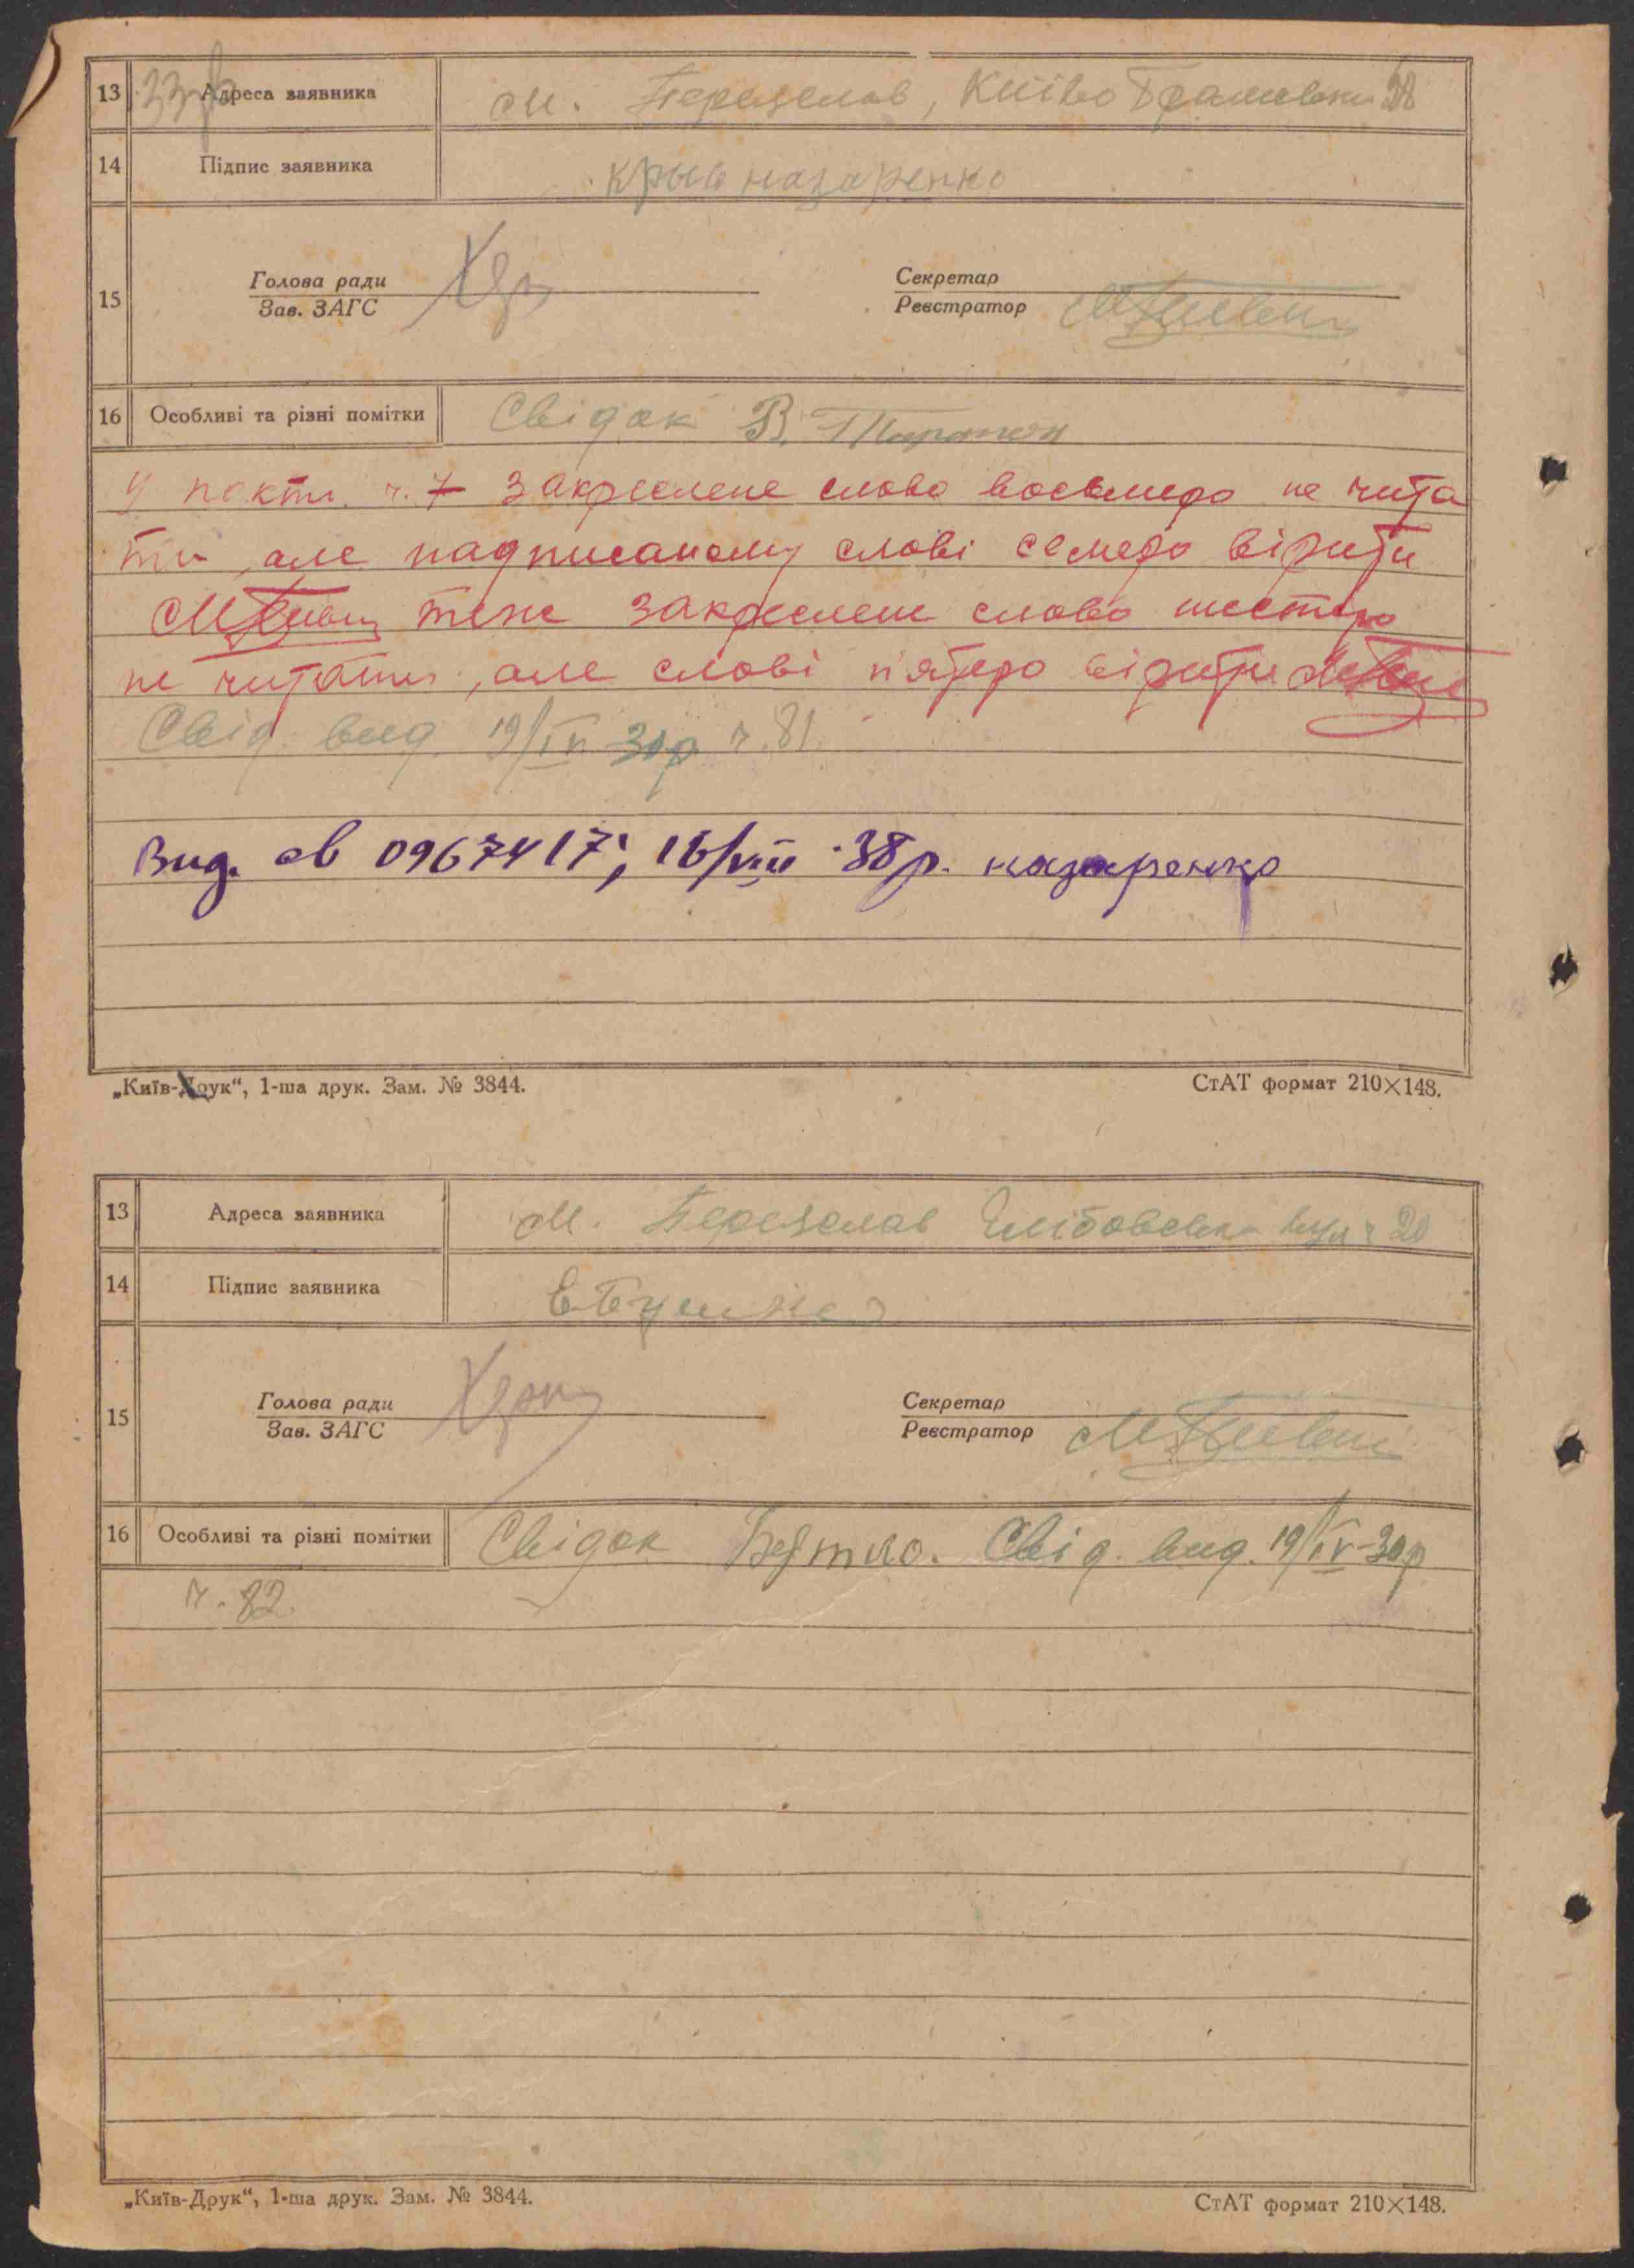 13 Адреса заявника м. Переяслав, Київо
14 Підпис заявника назаренко
Голова ради Секретар
15
Зав. ЗАГС Реєстратор
16 Особливі та різні помітки Свідок В.
ч. 7 закреслене слово восьмеро не чита
ти, але надписаному слові семеро вірити
теж закреслене слово шестеро
не читати, але слові п'ятеро вірити
Свід. вид. 19/IV-30р ч. 81.
Вид. св 0967417; 16/VIII 38р. назаренко
„Київ-Друк“, 1-ша друк. Зам. № 3844. СтАТ формат 210×148.
13 Адреса заявника м. Переяслав 20
14 Підпис заявника
Голова ради Секретар
15
Зав. ЗАГС Реєстратор
16 Особливі та різні помітки Свідок Свід. вид. 19/IV-30р
ч. 82.
„Київ-Друк“, 1-ша друк. Зам. № 3844. СтАТ формат 210×148.